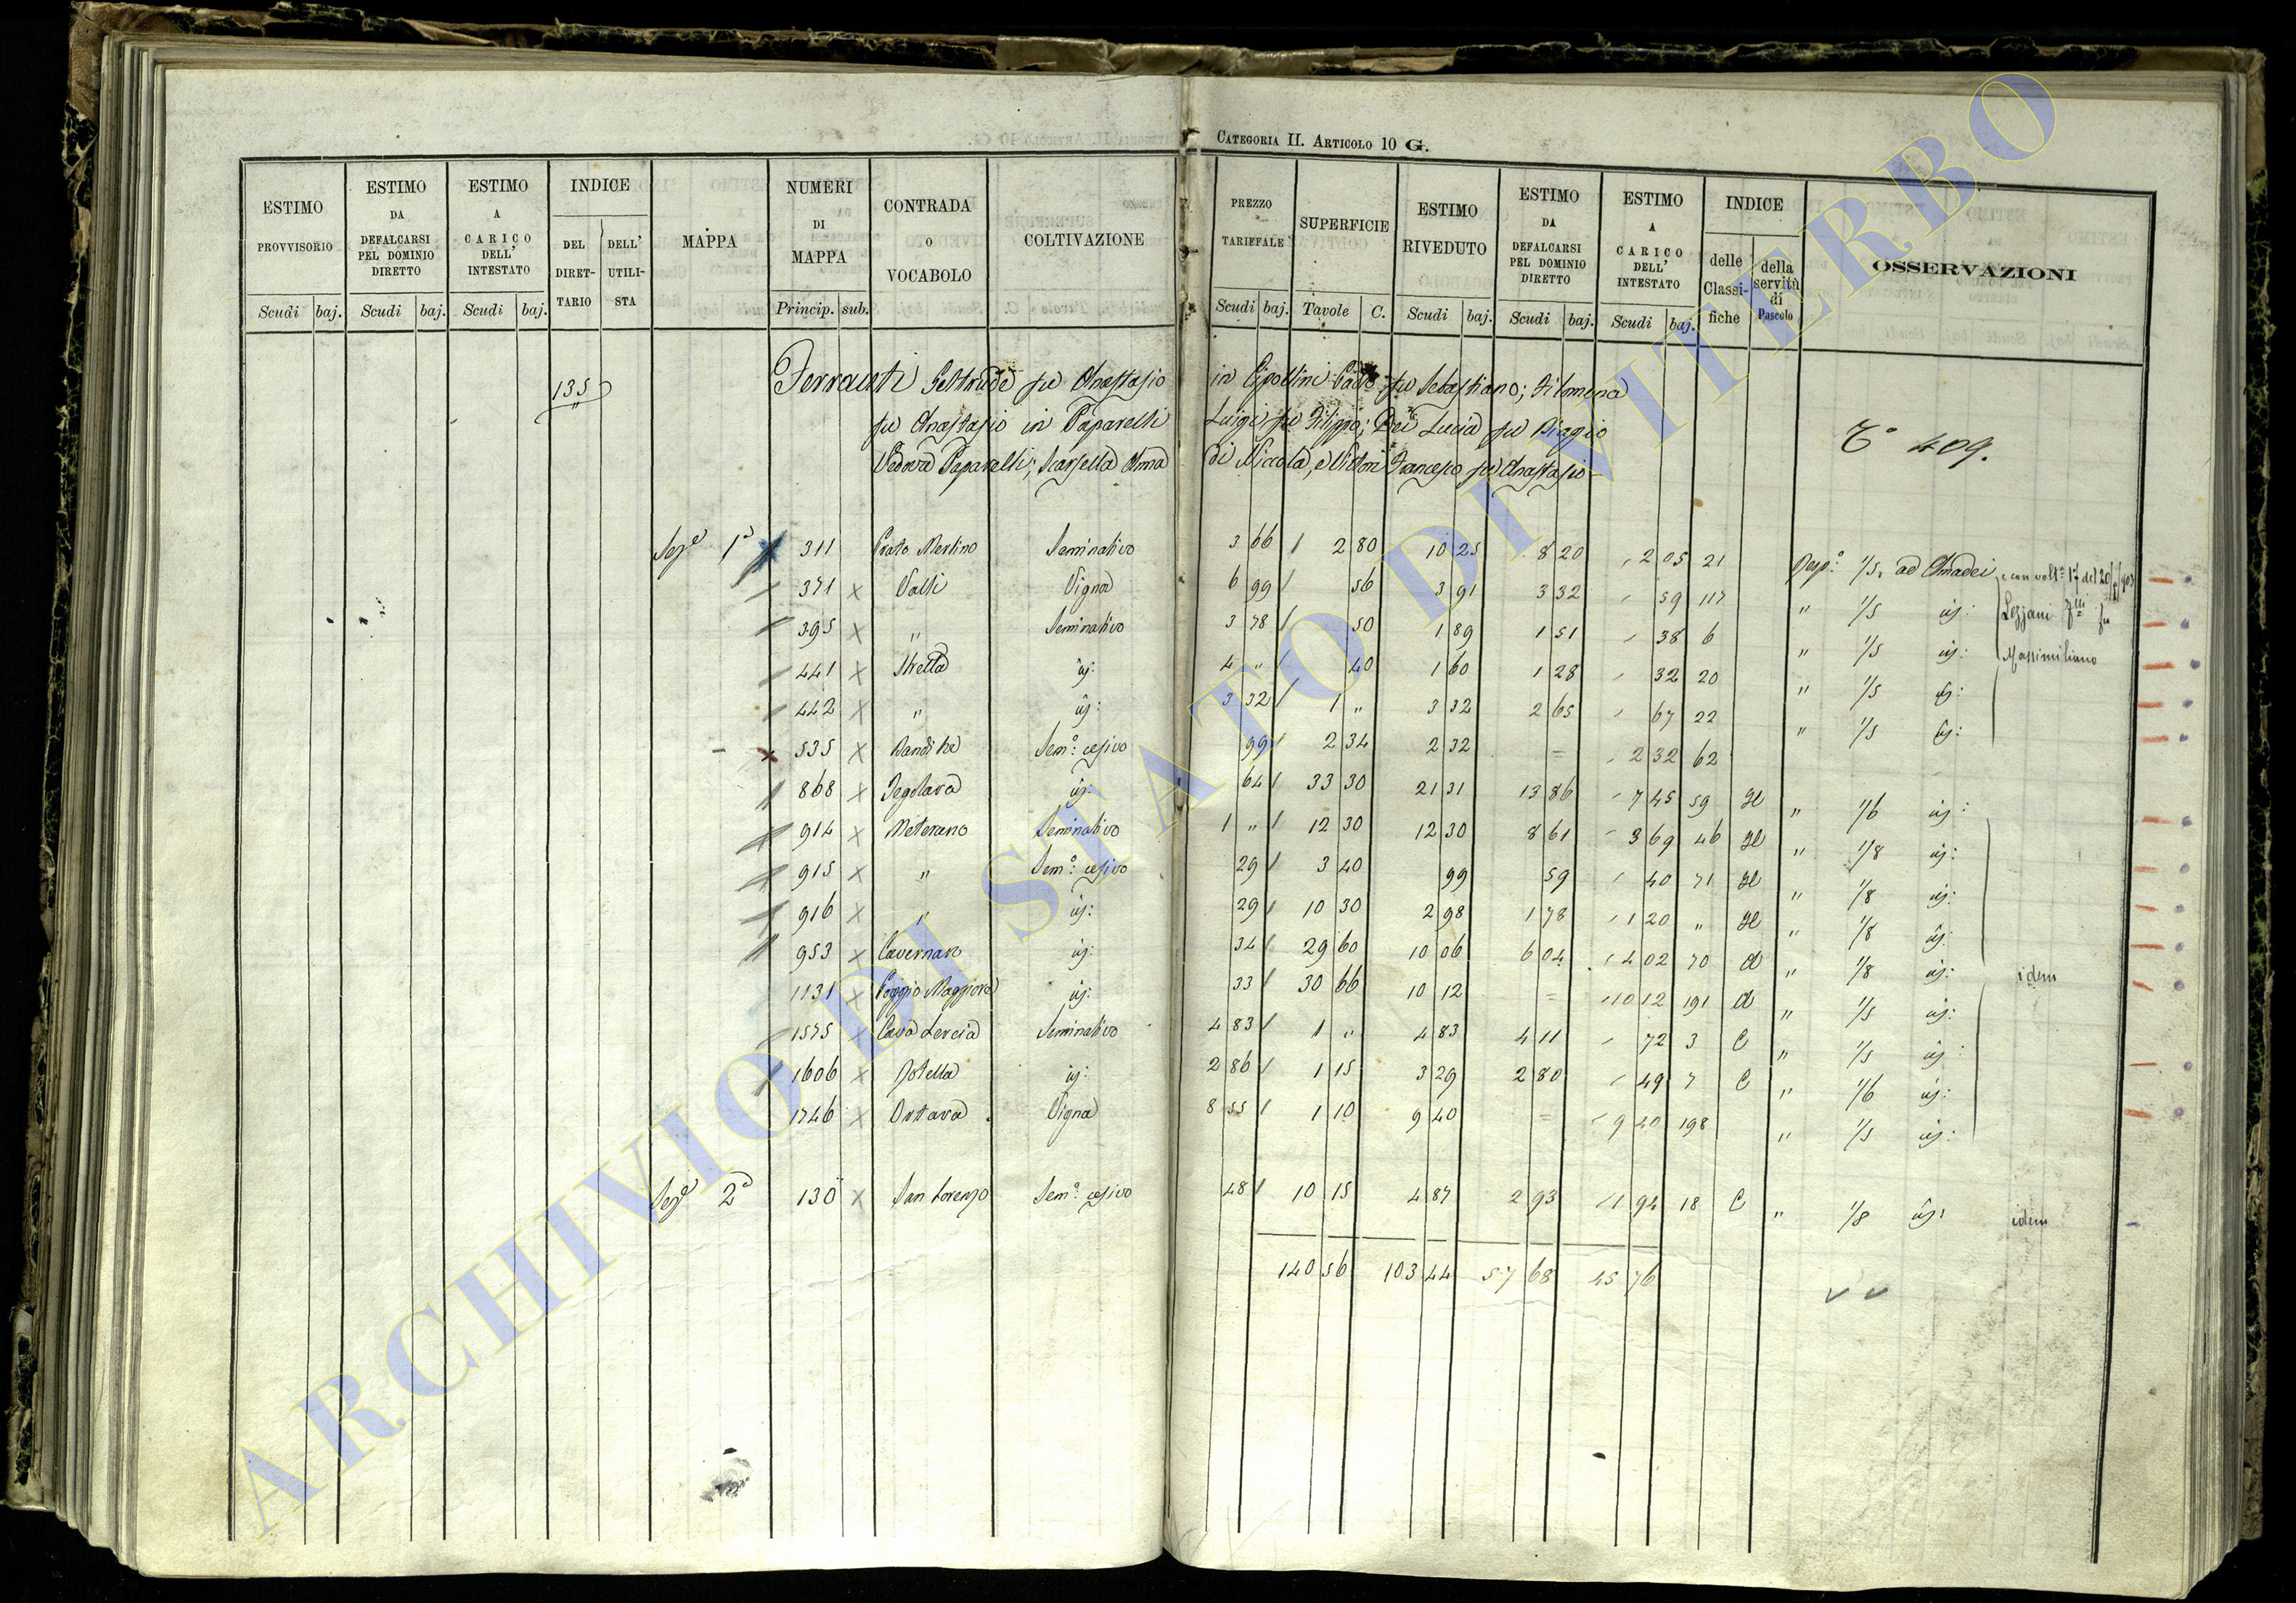 CATEGORIA II. ARTICOLO 10 G.
ESTIMO PROVVISORIO Scudi baj.
ESTIMO DA DEFALCARSI PEL DOMINIO DIRETTO Scudi baj.
ESTIMO A CARICO DELL' INTESTATO Scudi baj.
INDICE DEL DIRETTARIO DELL' UTILISTA
MAPPA
NUMERI DI MAPPA Princip. sub.
CONTRADA O VOCABOLO
COLTIVAZIONE
PREZZO TARIFFALE Scudi baj.
SUPERFICIE Tavole C.
ESTIMO RIVEDUTO Scudi baj.
ESTIMO DA DEFALCARSI PEL DOMINIO DIRETTO Scudi baj.
ESTIMO A CARICO DELL' INTESTATO Scudi baj.
INDICE delle Classifiche della servitù di Pascolo
OSSERVAZIONI
135 Ferranti Geltrude fu Anastasio in Cipollini fu Sebastiano; Filomena
fu Anastasio in Paparelli Luigi fu Filippo; Dei Lucia fu Biaggio
Vedova Paparelli; Scarsella Anna di Niccola, e Vittori Francesco fu Anastasio
Cº 409.
Sezе 1ª 311 Prato Merlino Seminativo 3 66 2 80 10 25 8 20 2 05 21 Risp: 1/5 ad Amadei e con volt.ª 17 del 20/ /903
371 x Valli Vigna 6 99 56 3 91 3 32 59 117 " 1/5 id: Lezzani fu
395 x " Seminativo 3 78 50 1 89 1 51 38 6 " 1/5 id: Massimiliano
441 x Stretta id: 4 " 40 1 60 1 28 32 20 " 1/5 id:
442 x " id: 3 32 1 " 3 32 2 65 67 22 " 1/5 id:
535 x Bandita Sem.º cesivo 99 2 34 2 32 = 2 32 62
868 x Pegolara id: 64 33 30 21 31 13 86 7 45 59 " 1/6 id:
914 x Meterano Seminativo 1 " 12 30 12 30 8 61 3 69 46 " 1/8 id:
915 x " Sem.º cesivo 29 3 40 99 59 40 71 " 1/8 id:
916 x " id: 29 10 30 2 98 1 78 1 20 " " 1/8 id:
953 x Cavernaro id: 34 29 60 10 06 6 04 4 02 70 " 1/8 id: idem
1131 x Poggio Maggiore id: 33 30 66 10 12 = 10 12 191 " 1/5 id:
1575 x Cava Lercia Seminativo 4 83 1 " 4 83 4 11 72 3 C " 1/5 id:
1606 x id: 2 86 1 15 3 29 2 80 49 7 C " 1/6 id:
1746 x Ortara Vigna 8 55 1 10 9 40 = 9 40 198 " 1/5 id:
Sezе 2ª 130 x San Lorenzo Sem.º cesivo 48 10 15 4 87 2 93 1 94 18 C " 1/8 id: idem
140 56 103 44 57 68 45 76
ARCHIVIO DI STATO DI VITERBO